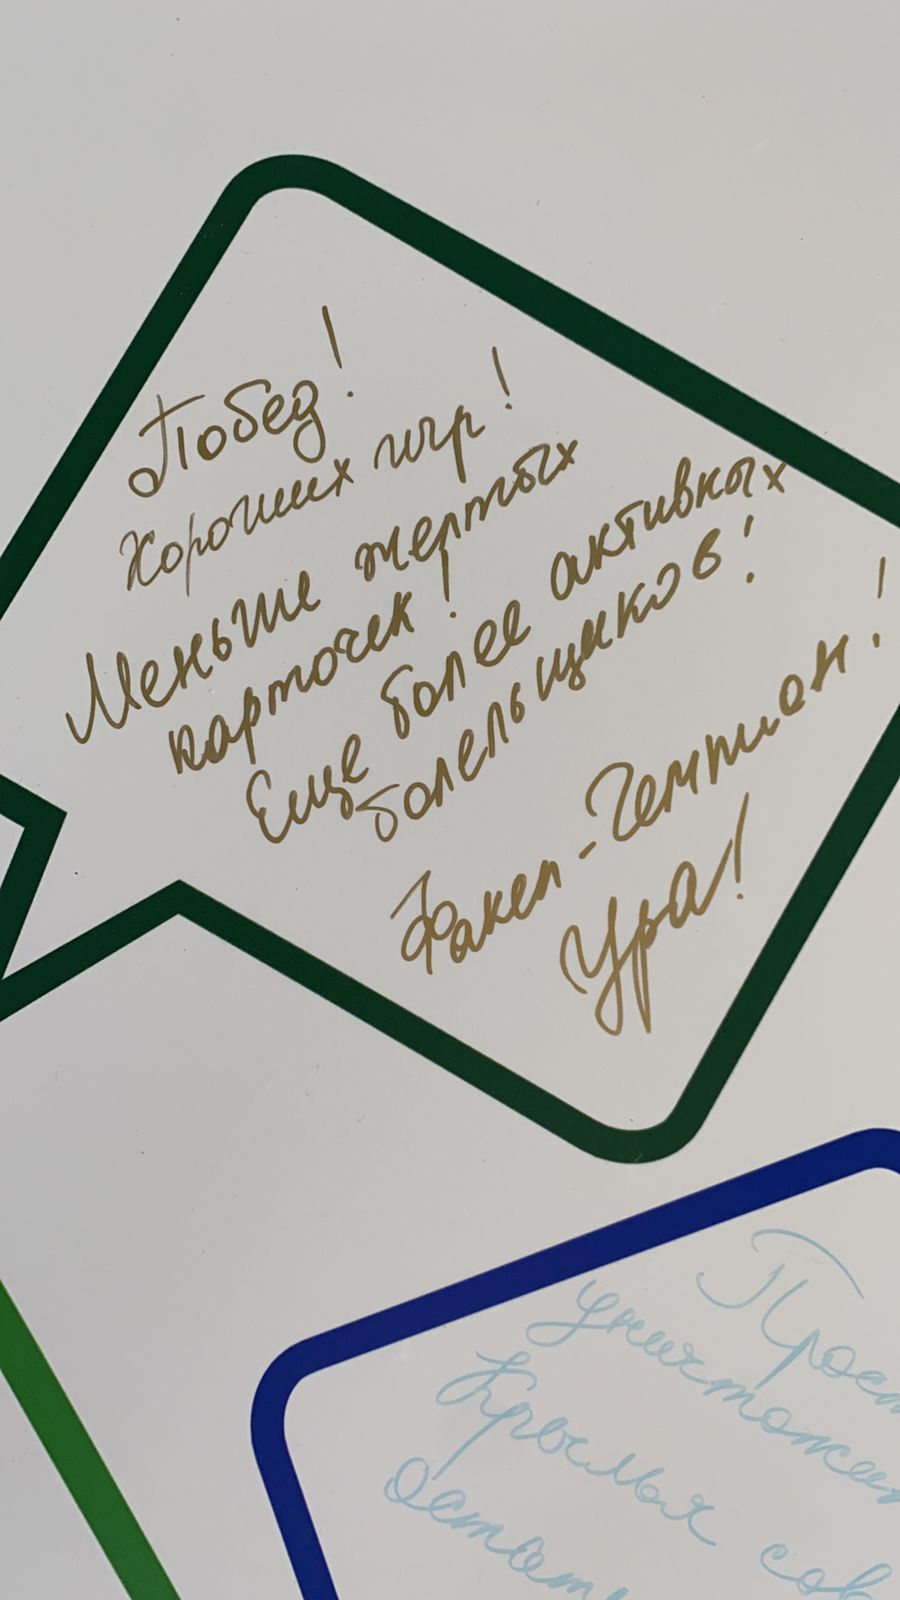 Побед!
Хороших игр!
Меньше жертых
карточек!
Еще более активных
болельщиков!
Факел-Чемпион!
Ура!
Прост
уничтожи
Крылья сов
остат